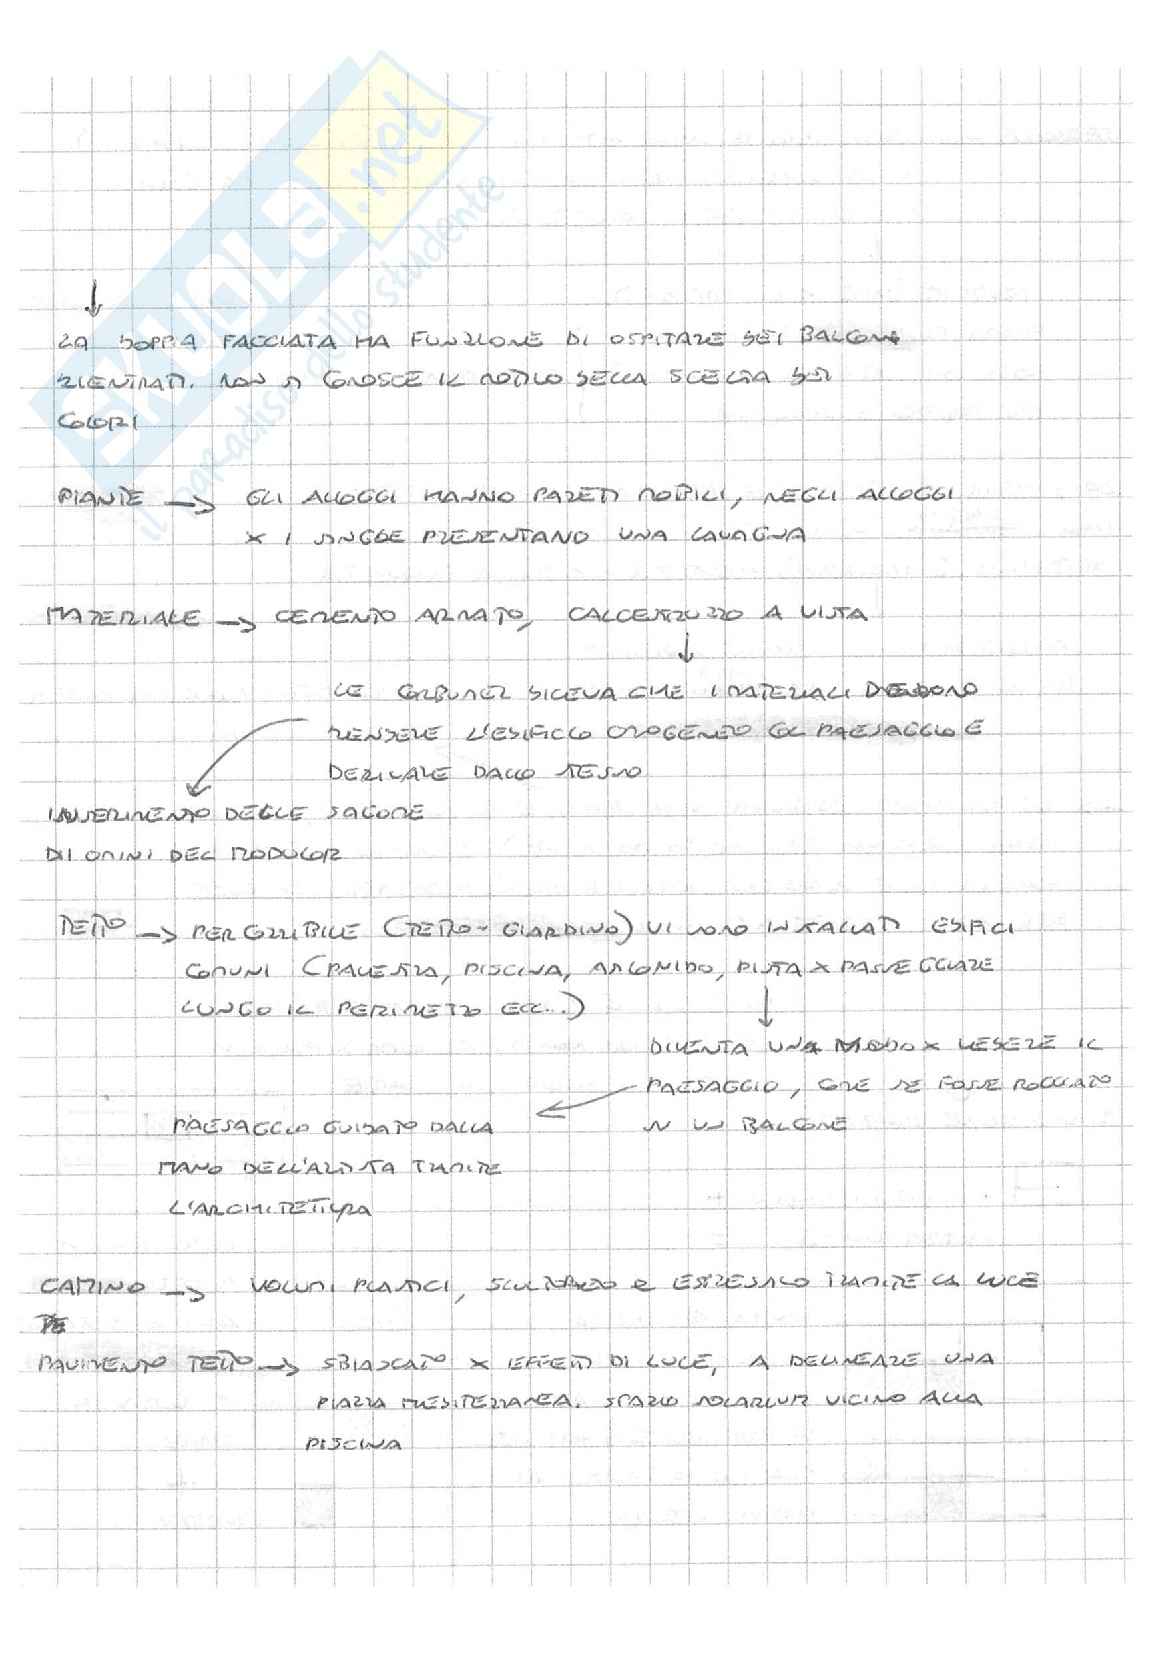 SKUOLA.net
il paradiso dello studente
↓
LA DOPPIA FACCIATA HA FUNZIONE DI OSPITARE DEI BALCONI
RIENTRATI. NON SI CONOSCE IL MOTIVO DELLA SCELTA DEI
COLORI
PIANTE → GLI ALLOGGI HANNO PARETI MOBILI, NEGLI ALLOGGI
X I SINGLE PRESENTANO UNA LAVAGNA
MATERIALE → CEMENTO ARMATO, CALCESTRUZZO A VISTA
↓
LE CORBUSIER DICEVA CHE I MATERIALI DEVONO
RENDERE L'EDIFICIO OMOGENEO COL PAESAGGIO E
DERIVARE DALLO STESSO
INSERIMENTO DELLE SAGOME
DI OMINI DEL MODULOR
TETTO → PERCORRIBILE (TETTO-GIARDINO) VI SONO INSTALLATI EDIFICI
COMUNI (PALESTRA, PISCINA, ASILO NIDO, PISTA X PASSEGGIARE
LUNGO IL PERIMETRO ECC...)
↓
DIVENTA UN MODO X VEDERE IL
PAESAGGIO, COME SE FOSSE
IN UN BALCONE
PAESAGGIO GUIDATO DALLA
MANO DELL'ARTISTA TRAMITE
L'ARCHITETTURA
CAMINO → VOLUMI PLASTICI, E TRAMITE LA LUCE
PAVIMENTO TETTO → X EFFETTI DI LUCE, A DELINEARE UNA
PIAZZA MEDITERRANEA. SPAZIO SOLARIUM VICINO ALLA
PISCINA